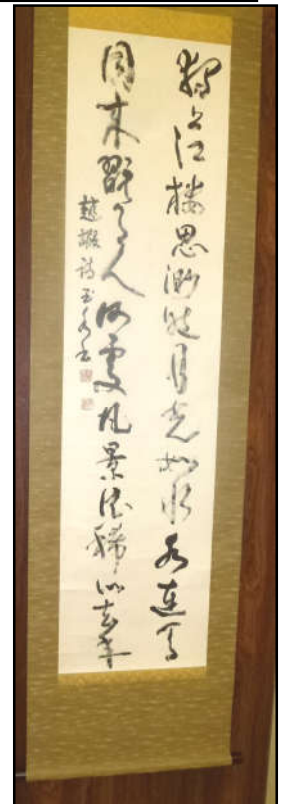 獨上江樓思渺然月光如水水連天
同来翫月人何處風景依稀似去年
趙嘏詩